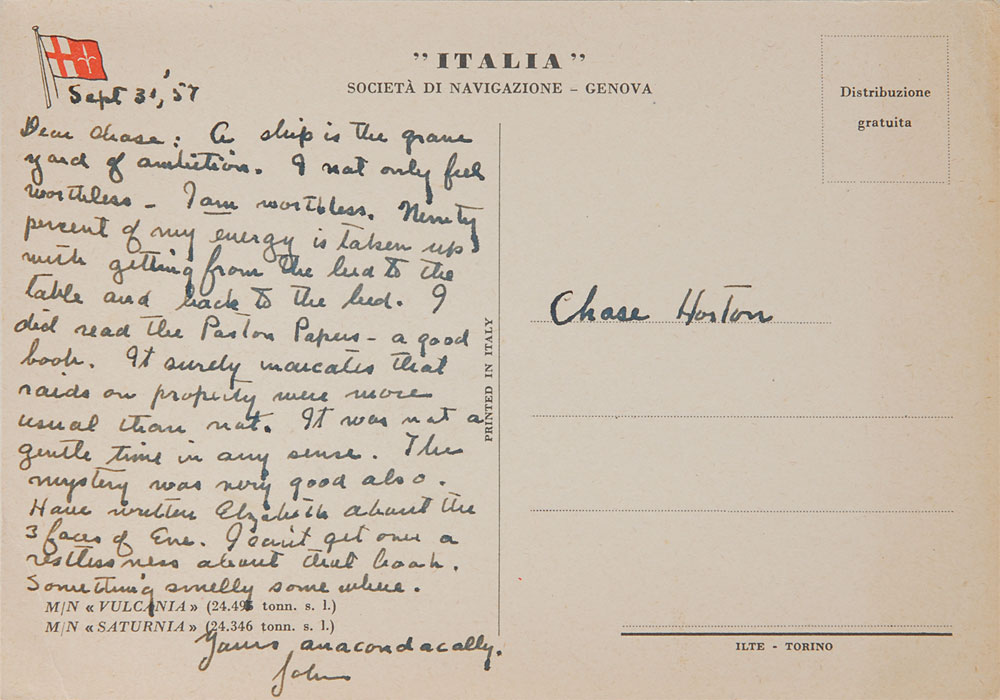 "ITALIA"
SOCIETÀ DI NAVIGAZIONE – GENOVA
Distribuzione
gratuita
Sept 31, '57
Dear Chase: A ship is the grave
yard of ambition. I not only feel
worthless – I am worthless. Ninety
percent of my energy is taken up
with getting from the bed to the
table and back to the bed. I
did read the Paston Papers – a good
book. It surely indicates that
raids on property were more
usual than not. It was not a
gentle time in any sense. The
mystery was very good also.
Have written Elizabeth about the
3 faces of Eve. I can't get over a
restlessness about that book.
Something smelly some where.
M/N « VULCANIA » (24.495 tonn. s. l.)
M/N « SATURNIA » (24.346 tonn. s. l.)
Yours anacondacally.
John
PRINTED IN ITALY
Chase Horton
ILTE - TORINO